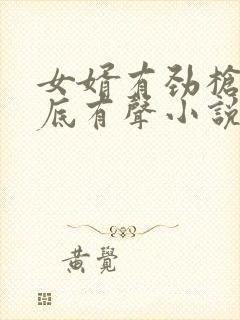 女婿有劲槍
底有聲小說
黄覺